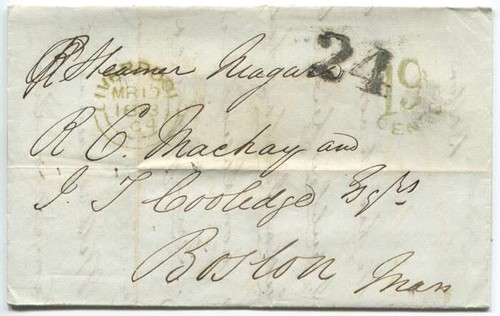 Pr Steamer Niagara
24
19
CENTS
LIVERPOOL
MR 17
R. C. Mackay and
J. T. Cooledge Esqrs
Boston Mass